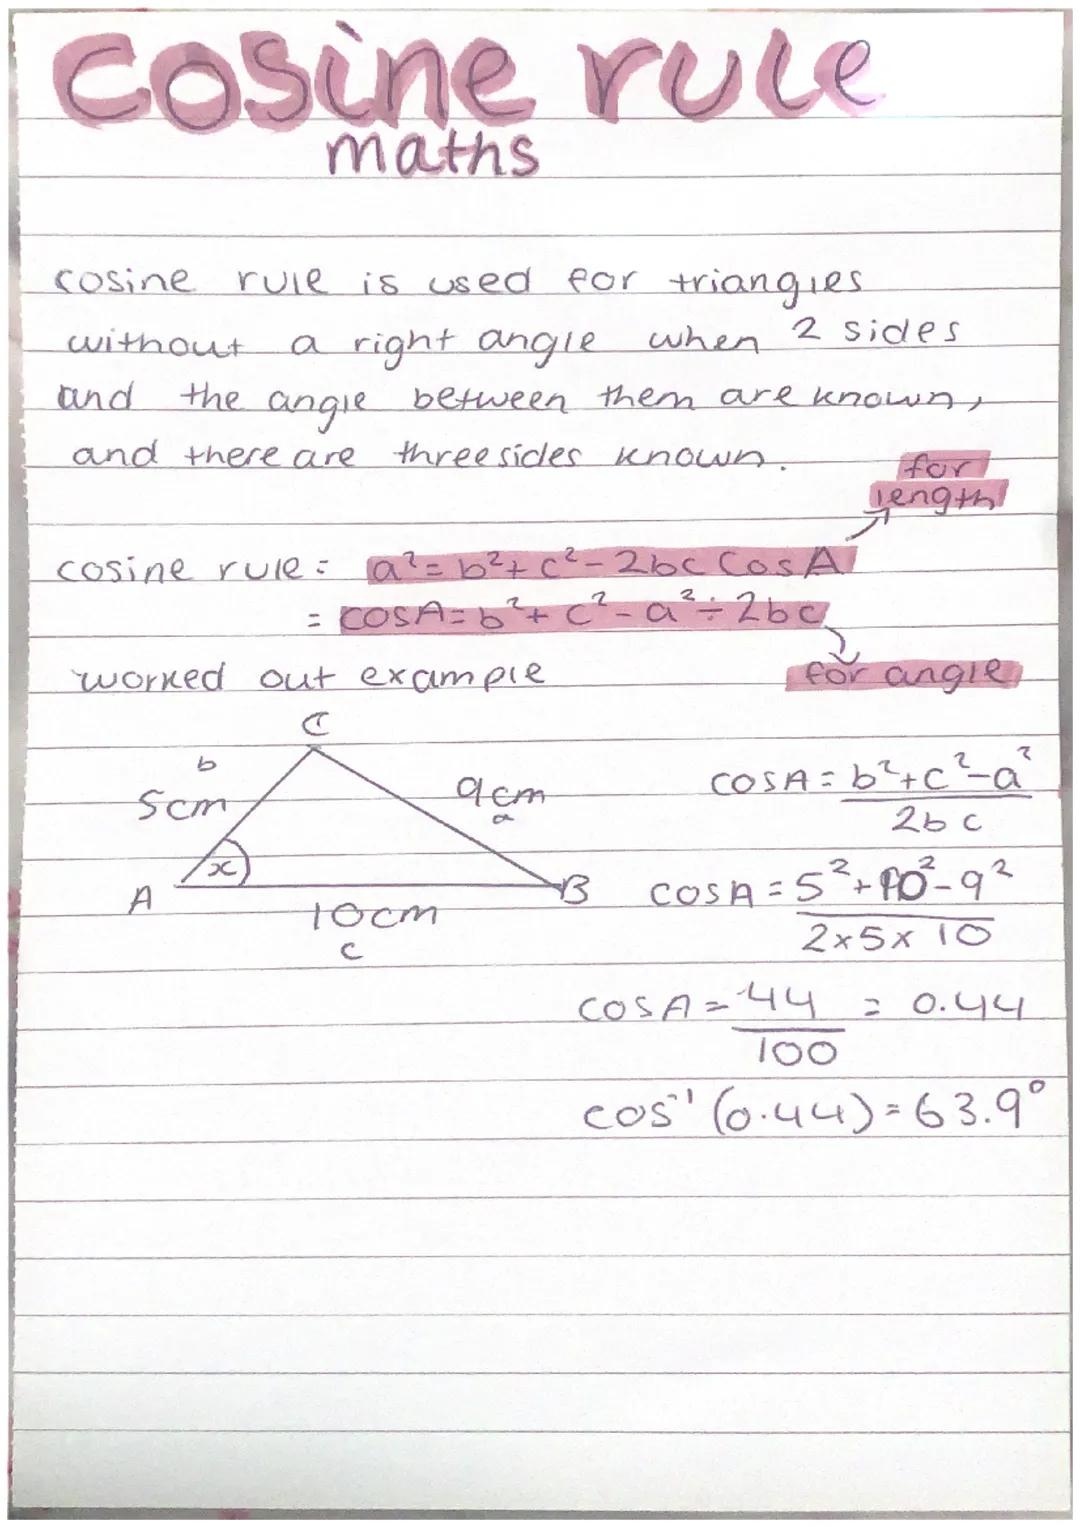 cosine rule
maths
cosine rule is used for triangles
without a right angle when 2 sides
and the angle between them are known,
and there are three sides known.
for
length
cosine rule: a²=b²+c²-2bc CosA
= cosA=b²+c²-a²÷2bc
worked out example
for angle
C
b
5cm
9cm
a
x
A
B
10cm
c
cosA = b²+c²-a²
2bc
cosA = 5²+10²-9²
2x5x10
cosA = 44 = 0.44
100
cos⁻¹(0.44)=63.9°